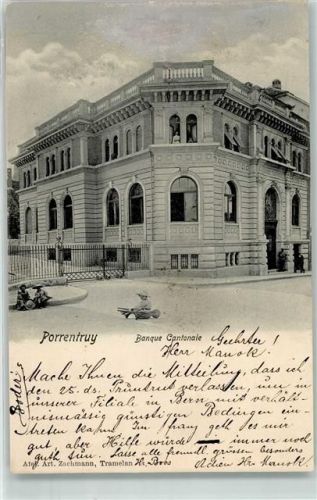 Porrentruy
Banque Cantonale
Geehrter!
Herr Manok.
Mache Ihnen die Mitteilung, dass ich
den 25. ds. Pruntrut verlassen, um in
unserer Filiale in Bern mit verhält-
nismässig günstigen Bedingen ein-
treten kann. Im ganz geht es mir
gut, aber Hölfe würde immer noch
gut sein. Lasse alle freundl. grüssen besonders
Adieu Hr. Manok.
Atel. Art. Zachmann, Tramelan